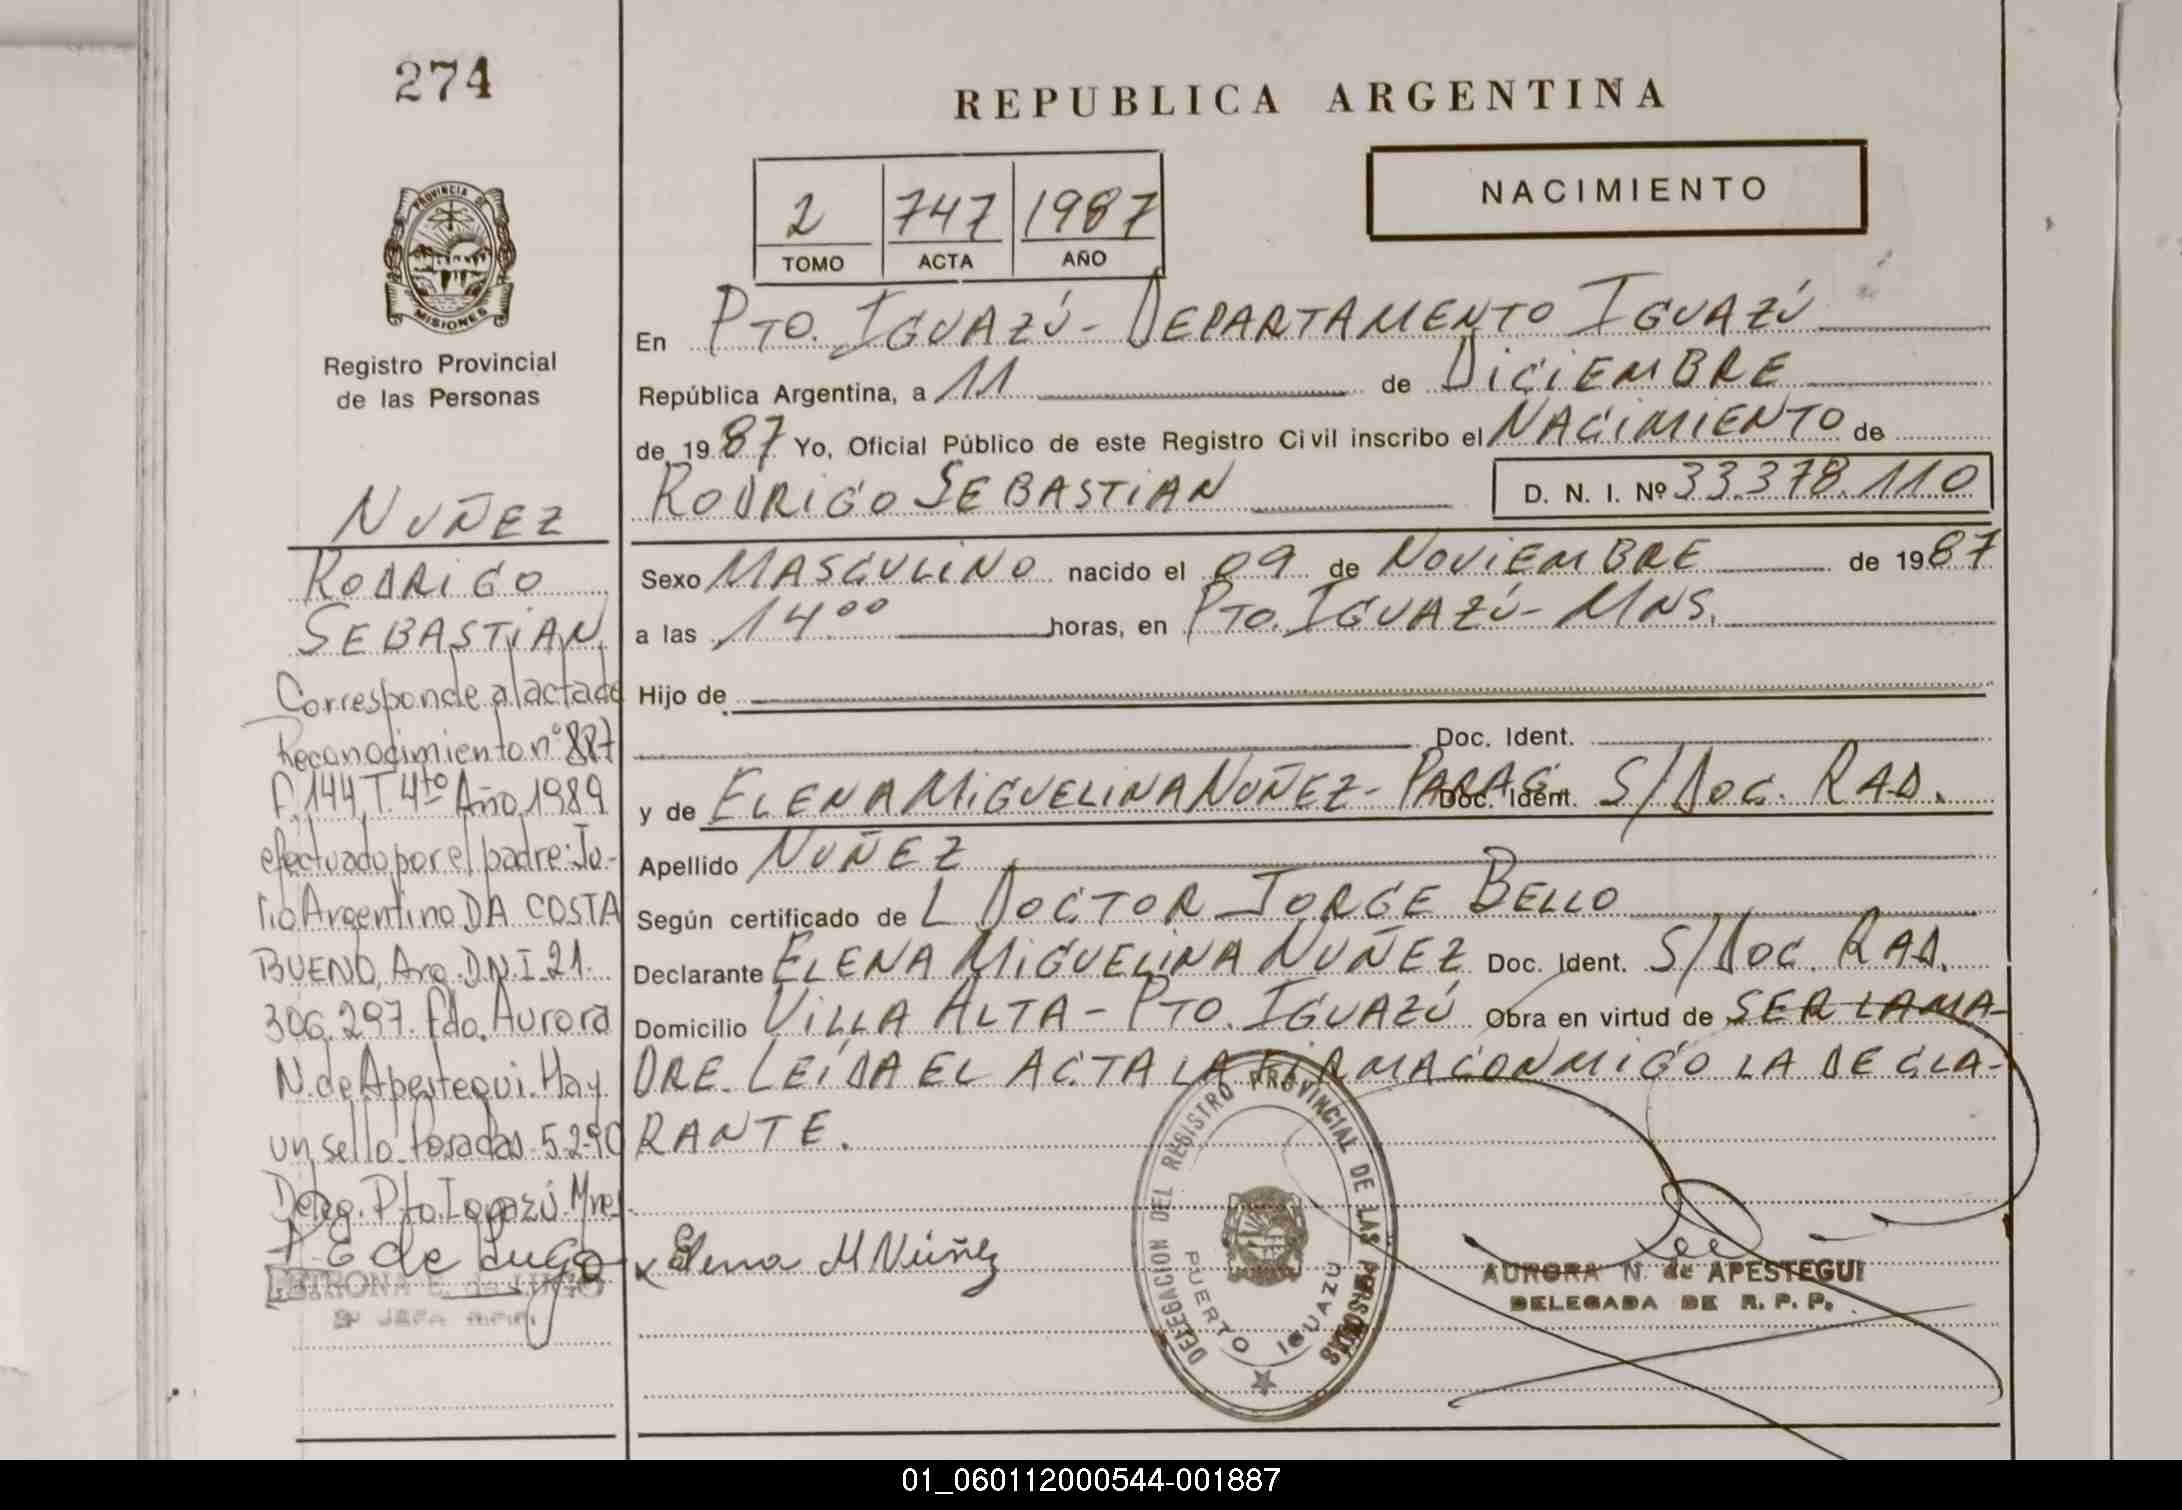 274
PROVINCIA DE
MISIONES
Registro Provincial
de las Personas
NUÑEZ
RODRIGO
SEBASTIAN
Corresponde al acta de
Reconocimiento nº 887
F. 144 T. 4to Año 1989
efectuado por el padre: Ju-
lio Argentino DA COSTA
BUENO, Arg. D.N.I. 21.
306.297. Fdo. Aurora
N. de Apestegui. Hay
un sello. Posadas. 5.2.90
Deleg. Pto. Iguazú. Mnes
P. E de Lugo
PETRONA E. de LUGO
REPUBLICA ARGENTINA
2 747 1987
TOMO ACTA AÑO
NACIMIENTO
En PTO. IGUAZÚ - DEPARTAMENTO IGUAZÚ
República Argentina, a 11 de DICIEMBRE
de 1987 Yo, Oficial Público de este Registro Civil inscribo el NACIMIENTO de
RODRIGO SEBASTIAN D. N. I. Nº 33.378.110
Sexo MASCULINO nacido el 09 de NOVIEMBRE de 1987
a las 14 00 horas, en PTO. IGUAZÚ - MNS.
Hijo de
Doc. Ident.
y de ELENA MIGUELINA NUÑEZ - PARAG. Doc. Ident. S/DOC. RAD.
Apellido NUÑEZ
Según certificado de L DOCTOR JORGE BELLO
Declarante ELENA MIGUELINA NUÑEZ Doc. Ident. S/DOC. RAD.
Domicilio VILLA ALTA - PTO. IGUAZÚ Obra en virtud de SER LA MA-
DRE. LEÍDA EL ACTA LA FIRMA CONMIGO LA DECLA-
RANTE.
x Elena M Núñez
DELEGACION DEL REGISTRO PROVINCIAL DE LAS PERSONAS
PUERTO IGUAZU
AURORA N. de APESTEGUI
DELEGADA DE R. P. P.
01_060112000544-001887